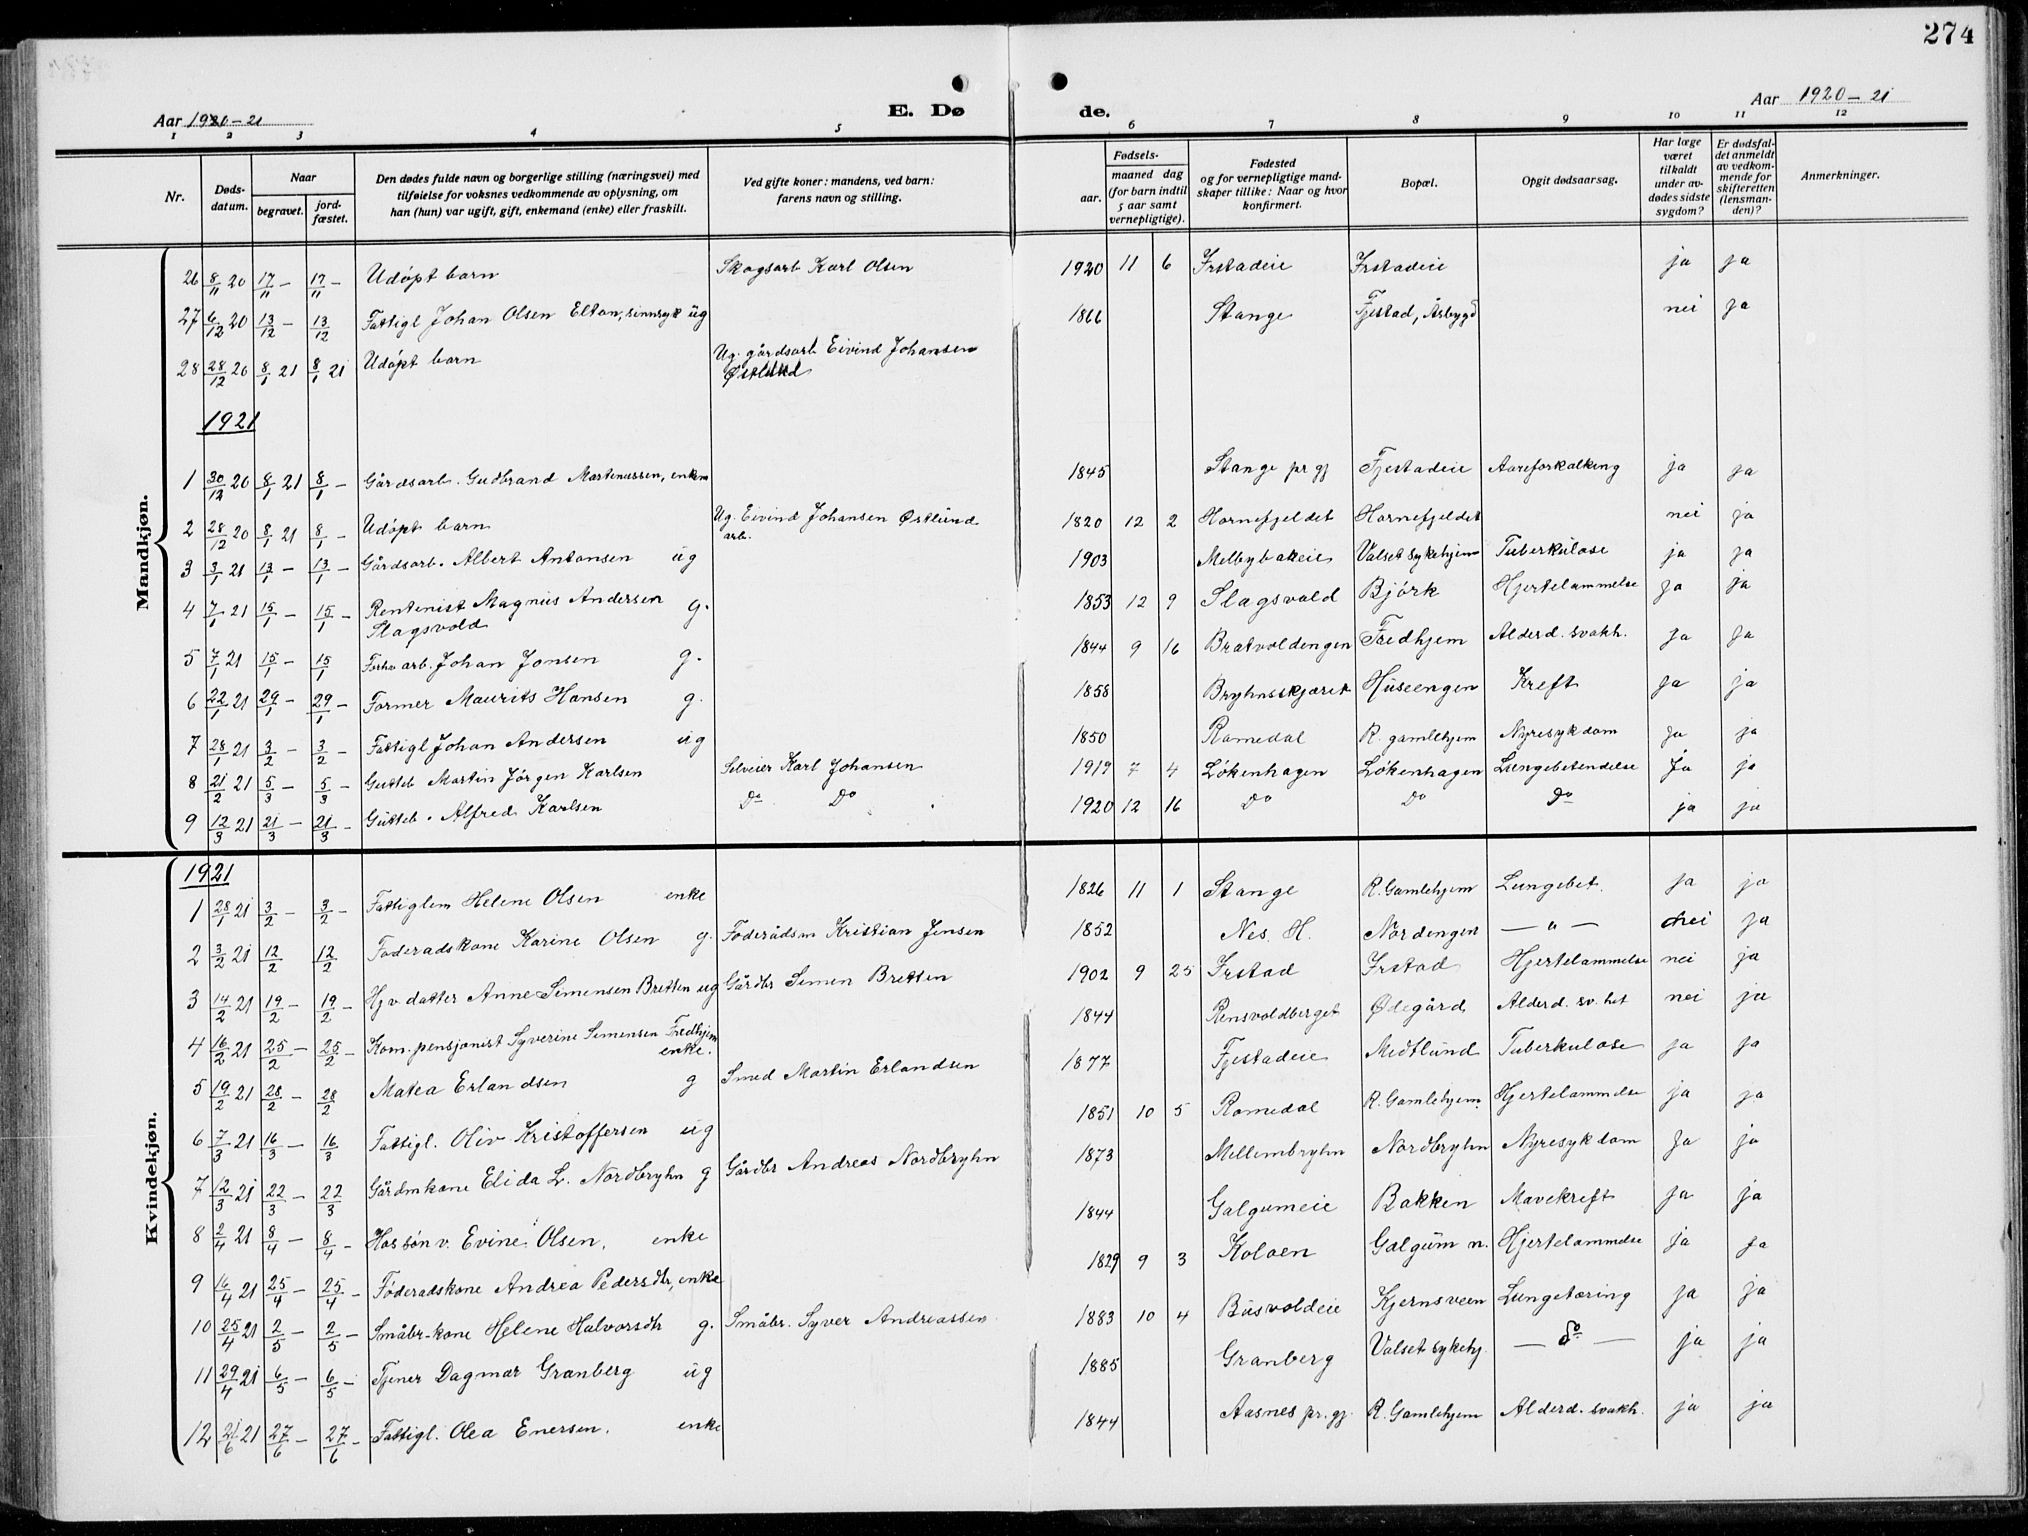 274
Aar 1920-21
E. Dø
de.
Aar 1920-21
1 2 3 4 5 6 7 8 9 10 11 12
Nr.
Døds-
datum.
Naar
begravet.
jord-
fæstet.
Den dødes fulde navn og borgerlige stilling (næringsvei) med
tilføielse for voksnes vedkommende av oplysning, om
han (hun) var ugift, gift, enkemand (enke) eller fraskilt.
Ved gifte koner: mandens, ved barn:
farens navn og stilling.
Fødsels-
aar.
maaned dag
(for barn indtil
5 aar samt
vernepligtige).
Fødested
og for vernepligtige mand-
skaper tillike: Naar og hvor
konfirmert.
Bopæl.
Opgit dødsaarsag.
Har læge
været
tilkaldt
under av-
dødes sidste
sygdom?
Er dødsfal-
det anmeldt
av vedkom-
mende for
skifteretten
(lensman-
den)?
Anmerkninger.
Mandkjøn.
26 8/11 20 17/11 - 17/11 - Udøpt barn Skogsarb Karl Olsen 1920 11 6 Frstadeie Frstadeie ja ja
27 6/12 20 13/12 - 13/12 Fattigl Johan Olsen Elton, sinnsyk ug 1866 Stange Fjestad, Åsbygd nei ja
28 28/12 20 8/1 21 8/1 21 Udøpt barn Ug. gårdsarb Eivind Johansen
Østlund
1921
1 30/12 20 8/1 21 8/1 - Gårdsarb. Gudbrand Martinussen, enkem 1845 Stange pr gj Fjestadeie Aareforkalking ja ja
2 28/12 20 8/1 21 8/1 - Udøpt barn Ug. Eivind Johansen Østlund
arb. 1820 12 2 Hornefjeldet Hornefjeldet nei ja
3 3/1 21 13/1 - 13/1 - Gårdsarb. Albert Antonsen ug 1903 Melbybakeie Valset sykehjem Tuberkulose ja ja
4 7/1 21 15/1 - 15/1 - Rentenist Magnus Andersen g.
Slagsvold 1853 12 9 Slagsvold Bjørk Hjertelammelse ja ja
5 7/1 21 15/1 - 15/1 Forhv arb. Johan Jonsen g. 1844 9 16 Bratvoldengen Fredhjem Alderd. svakh. ja ja
6 22/1 21 29/1 - 29/1 - Former Maurits Hansen g. 1858 Bryhnsskjæret Huseengen Kreft ja ja
7 28/1 21 3/2 - 3/2 - Fattigl Johan Andersen ug 1850 Romedal R. gamlehjem Nyresykdom ja ja
8 21/2 21 5/3 - 5/3 - Gutteb Martin Jørgen Karlsen Selveier Karl Johansen 1919 7 4 Løkenhagen Løkenhagen Lungebetendelse Ja ja
9 12/3 21 21/3 - 21/3 - Gutteb. Alfred Karlsen Do Do 1920 12 16 Do Do Do ja ja
Kvindekjøn.
1921
1 28/1 21 3/2 - 3/2 - Fattiglem Helene Olsen enke 1826 11 1 Stange R. Gamlehjem Lungebet. ja ja
2 3/2 21 12/2 12/2 Føderadskone Karine Olsen g. Føderådsm Kristian Jensen 1852 Nes. H. Nordengen — " — nei ja
3 14/2 21 19/2 - 19/2 - Hjv datter Anne Simensen Bretten ug Gårdbr Simen Bretten 1902 9 25 Frstad Frstad Hjertelammelse nei ja
4 16/2 21 25/2 - 25/2 - Kom. pensjonist Syverine Simensen Fredhjem
enke. 1844 Rensvoldberget Ødegård Alderd. sv. het nei ja
5 19/2 21 28/2 - 28/2 Matea Erlandsen g Smed Martin Erlandsen 1877 Fjestadeie Medtlund Tuberkulose ja ja
6 7/3 21 16/3 - 16/3 Fattigl. Oliv Kristoffersen ug 1851 10 5 Romedal R. Gamlehjem Hjertelammelse ja ja
7 12/3 21 22/3 - 22/3 Gårdmkone Elida L. Nordbryhn g Gårdbr Andreas Nordbryhn 1873 Mellembryhn Nordbryhn Nyresykdom ja ja
8 2/4 21 8/4 - 8/4 - Hos sønv. Evine Olsen. enke 1844 Galgumeie Bakken Mavekreft ja ja
9 16/4 21 25/4 - 25/4 - Føderadskone Andrea Pedersdtr, enke 1829 9 3 Koloen Galgum n. Hjertelammelse ja ja
10 25/4 21 2/5 - 2/5 - Småbr-kone Helene Halvorsdtr g. Småbr. Syver Andreassen 1883 10 4 Busvoldeie Kjernsveen Lungetæring ja ja
11 29/4 21 6/5 - 6/5 - Tjener Dagmar Granberg ug 1885 Granberg Valset sykehj. — do — ja ja
12 21/6 21 27/6 - 27/6 - Fattigl. Olea Enersen. enke 1844 Aasnes pr. gj. R. Gamlehjem Alderd. svakh. ja ja